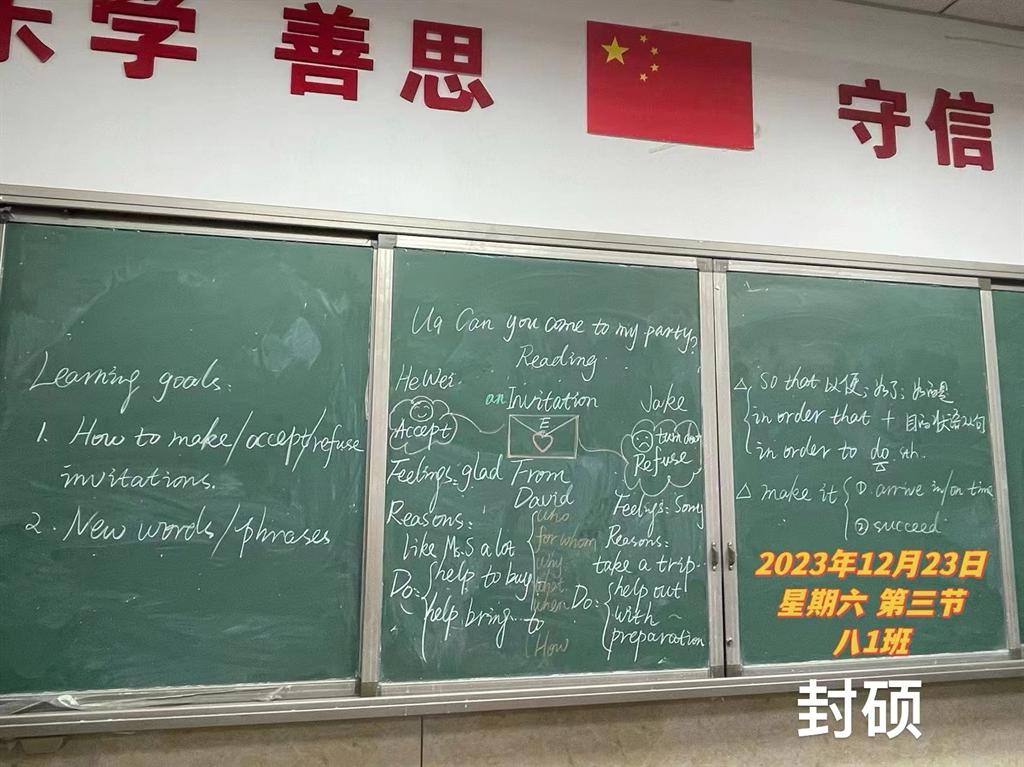 乐学 善思 守信
Learning goals:
1. How to make/accept/refuse
invitations.
2. New words/phrases
U9 Can you come to my party?
Reading
He Wei
Accept
Feelings: glad
Reasons:
like Ms.S a lot
Do: help to buy
help bring... to
an Invitation
E
From
David
who
for whom
why
what
when
How
Jake
turn down
Refuse
Feelings: Sorry
Reasons:
take a trip
Do: help out
with ~
preparation
△ so that 以便; 为了;
in order that + 目的状语从句
in order to do sth.
△ make it ①. arrive in/on time
② succeed
2023年12月23日
星期六 第三节
八1班
封硕